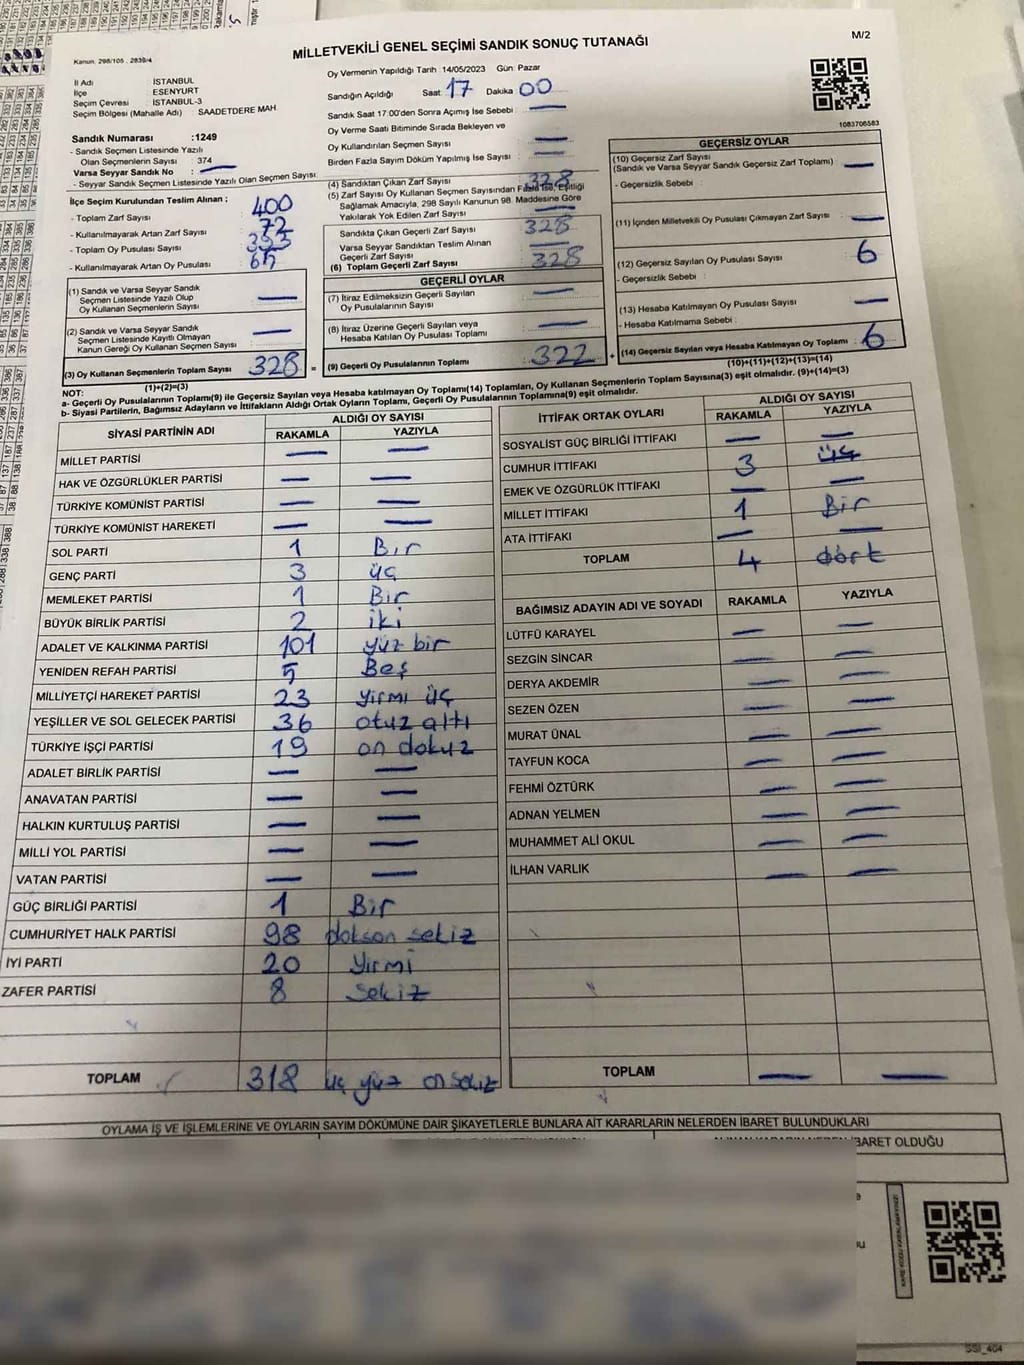 M/2
MİLLETVEKİLİ GENEL SEÇİMİ SANDIK SONUÇ TUTANAĞI
Kanun. 298/105 , 2839/4
İl Adı : İSTANBUL
İlçe : ESENYURT
Seçim Çevresi : İSTANBUL-3
Seçim Bölgesi (Mahalle Adı) : SAADETDERE MAH
Sandık Numarası :1249
- Sandık Seçmen Listesinde Yazılı
Olan Seçmenlerin Sayısı : 374
Varsa Seyyar Sandık No : —
- Seyyar Sandık Seçmen Listesinde Yazılı Olan Seçmen Sayısı:
Oy Vermenin Yapıldığı Tarih :14/05/2023 Gün: Pazar
Sandığın Açıldığı Saat 17 Dakika 00
Sandık Saat 17:00'den Sonra Açımış İse Sebebi : —
Oy Verme Saati Bitiminde Sırada Bekleyen ve
Oy Kullandırılan Seçmen Sayısı : —
Birden Fazla Sayım Döküm Yapılmış İse Sayısı : —
1083706583
İlçe Seçim Kurulundan Teslim Alınan ;
- Toplam Zarf Sayısı : 400
- Kullanılmayarak Artan Zarf Sayısı : 72
- Toplam Oy Pusulası Sayısı : 393
- Kullanılmayarak Artan Oy Pusulası : 65
(1) Sandık ve Varsa Seyyar Sandık
Seçmen Listesinde Yazılı Olup
Oy Kullanan Seçmenlerin Sayısı : —
(2) Sandık ve Varsa Seyyar Sandık
Seçmen Listesinde Kayıtlı Olmayan
Kanun Gereği Oy Kullanan Seçmen Sayısı : —
(3) Oy Kullanan Seçmenlerin Toplam Sayısı : 328
(1)+(2)=(3)
(4) Sandıktan Çıkan Zarf Sayısı : 328
(5) Zarf Sayısı Oy Kullanan Seçmen Sayısından Fazla İse, Eşitliği
Sağlamak Amacıyla, 298 Sayılı Kanunun 98. Maddesine Göre
Yakılarak Yok Edilen Zarf Sayısı : —
Sandıkta Çıkan Geçerli Zarf Sayısı : 328
Varsa Seyyar Sandıktan Teslim Alınan
Geçerli Zarf Sayısı : —
(6) Toplam Geçerli Zarf Sayısı : 328
GEÇERLİ OYLAR
(7) İtiraz Edilmeksizin Geçerli Sayılan
Oy Pusulalarının Sayısı : —
(8) İtiraz Üzerine Geçerli Sayılan veya
Hesaba Katılan Oy Pusulası Toplamı : —
= (9) Geçerli Oy Pusulalarının Toplamı : 322
GEÇERSİZ OYLAR
(10) Geçersiz Zarf Sayısı
(Sandık ve Varsa Seyyar Sandık Geçersiz Zarf Toplamı) : —
- Geçersizlik Sebebi :
(11) İçinden Milletvekili Oy Pusulası Çıkmayan Zarf Sayısı : —
(12) Geçersiz Sayılan Oy Pusulası Sayısı : 6
- Geçersizlik Sebebi :
(13) Hesaba Katılmayan Oy Pusulası Sayısı : —
- Hesaba Katılmama Sebebi :
+ (14) Geçersiz Sayılan veya Hesaba Katılmayan Oy Toplamı : 6
(10)+(11)+(12)+(13)=(14)
NOT:
a- Geçerli Oy Pusulalarının Toplamı(9) ile Geçersiz Sayılan veya Hesaba Katılmayan Oy Toplamı(14) Toplamları, Oy Kullanan Seçmenlerin Toplam Sayısına(3) eşit olmalıdır. (9)+(14)=(3)
b- Siyasi Partilerin, Bağımsız Adayların ve İttifakların Aldığı Ortak Oyların Toplamı, Geçerli Oy Pusulalarının Toplamına(9) eşit olmalıdır.
SİYASİ PARTİNİN ADI ALDIĞI OY SAYISI
RAKAMLA YAZIYLA
MİLLET PARTİSİ — —
HAK VE ÖZGÜRLÜKLER PARTİSİ — —
TÜRKİYE KOMÜNİST PARTİSİ — —
TÜRKİYE KOMÜNİST HAREKETİ — —
SOL PARTİ 1 Bir
GENÇ PARTİ 3 üç
MEMLEKET PARTİSİ 1 Bir
BÜYÜK BİRLİK PARTİSİ 2 iki
ADALET VE KALKINMA PARTİSİ 101 yüz bir
YENİDEN REFAH PARTİSİ 5 Beş
MİLLİYETÇİ HAREKET PARTİSİ 23 yirmi üç
YEŞİLLER VE SOL GELECEK PARTİSİ 36 otuz altı
TÜRKİYE İŞÇİ PARTİSİ 19 on dokuz
ADALET BİRLİK PARTİSİ — —
ANAVATAN PARTİSİ — —
HALKIN KURTULUŞ PARTİSİ — —
MİLLİ YOL PARTİSİ — —
VATAN PARTİSİ — —
GÜÇ BİRLİĞİ PARTİSİ 1 Bir
CUMHURİYET HALK PARTİSİ 98 doksan sekiz
İYİ PARTİ 20 Yirmi
ZAFER PARTİSİ 8 Sekiz
TOPLAM 318 üç yüz on sekiz
İTTİFAK ORTAK OYLARI ALDIĞI OY SAYISI
RAKAMLA YAZIYLA
SOSYALİST GÜÇ BİRLİĞİ İTTİFAKI — —
CUMHUR İTTİFAKI 3 üç
EMEK VE ÖZGÜRLÜK İTTİFAKI — —
MİLLET İTTİFAKI 1 Bir
ATA İTTİFAKI — —
TOPLAM 4 dört
BAĞIMSIZ ADAYIN ADI VE SOYADI RAKAMLA YAZIYLA
LÜTFÜ KARAYEL — —
SEZGİN SİNCAR — —
DERYA AKDEMİR — —
SEZEN ÖZEN — —
MURAT ÜNAL — —
TAYFUN KOCA — —
FEHMİ ÖZTÜRK — —
ADNAN YELMEN — —
MUHAMMET ALİ OKUL — —
İLHAN VARLIK — —
TOPLAM — —
OYLAMA İŞ VE İŞLEMLERİNE VE OYLARIN SAYIM DÖKÜMÜNE DAİR ŞİKAYETLERLE BUNLARA AİT KARARLARIN NELERDEN İBARET BULUNDUKLARI
İBARET OLDUĞU
SSI_404